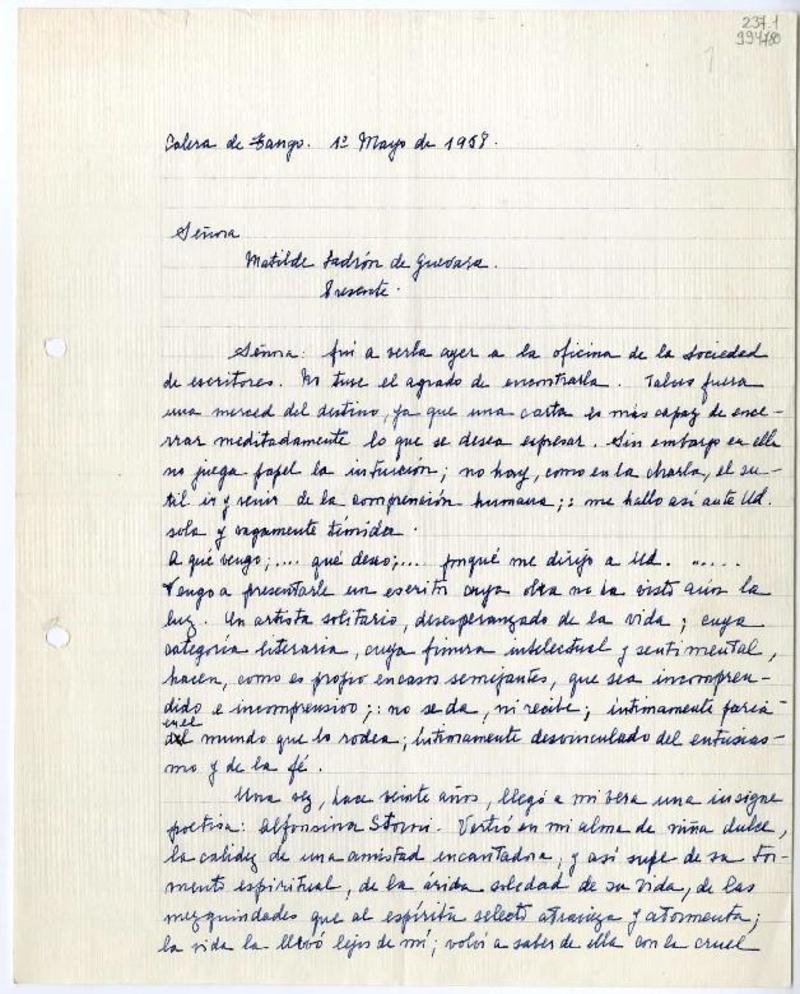 237.1
994780
1
Calera de Tango. 1º Mayo de 1958.
Señora
Matilde Ladrón de Guevara.
Presente.
Señora: fuí a verla ayer a la oficina de la Sociedad
de escritores. No tuve el agrado de encontrarla. Talves fuera
una merced del destino, ya que una carta es más capaz de ence-
rrar meditadamente lo que se desea espresar. Sin embargo en ella
no juega papel la intuición; no hay, como en la charla, el su-
til ir y venir de la comprensión humana;: me hallo así ante Ud.
sola y vagamente tímida.
A qué vengo;.... qué deseo;... porqué me dirijo a Ud. ......
Vengo a presentarle un escritor cuya obra no ha visto aún la
luz. Un artista solitario, desesperanzado de la vida; cuya
categoría literaria, cuya finura intelectual y sentimental,
hacen, como es propio en casos semejantes, que sea incompren-
dido e incomprensivo;: no se da, ni recibe; íntimamente paria
en el
del mundo que lo rodea; íntimamente desvinculado del entusias-
mo y de la fé.
Una vez, hace veinte años, llegó a mi vera una insigne
poetisa: Alfonsina Storni. Vertió en mi alma de niña dulce,
la calidez de una amistad encantadora, y así supe de su tor-
mento espiritual, de la árida soledad de su vida, de las
mezquindades que al espíritu selecto atravieza y atormenta;
la vida la llevó lejos de mí; volví a saber de ella con la cruel